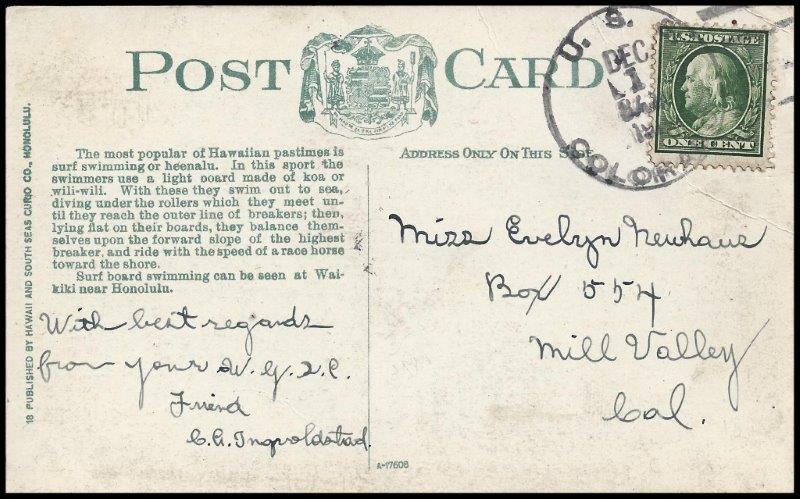 POST CARD
18 PUBLISHED BY HAWAII AND SOUTH SEAS CURIO CO., HONOLULU.
The most popular of Hawaiian pastimes is
surf swimming or heenalu. In this sport the
swimmers use a light board made of koa or
wili-wili. With these they swim out to sea,
diving under the rollers which they meet un-
til they reach the outer line of breakers; then,
lying flat on their boards, they balance them-
selves upon the forward slope of the highest
breaker, and ride with the speed of a race horse
toward the shore.
Surf board swimming can be seen at Wai-
kiki near Honolulu.
With best regards
from your W.G.2.C.
Friend
C.A. Ingvoldstad.
A-17608
ADDRESS ONLY ON THIS SIDE
U. S.
DEC
1
COLOR
U.S. POSTAGE
ONE CENT
Miss Evelyn Neuhaus
Box 554
Mill Valley
Cal.